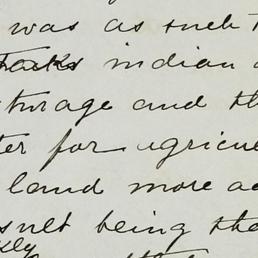 was as such t
indian
turage and th
ter for agricul
land more ac
sult being the
kly